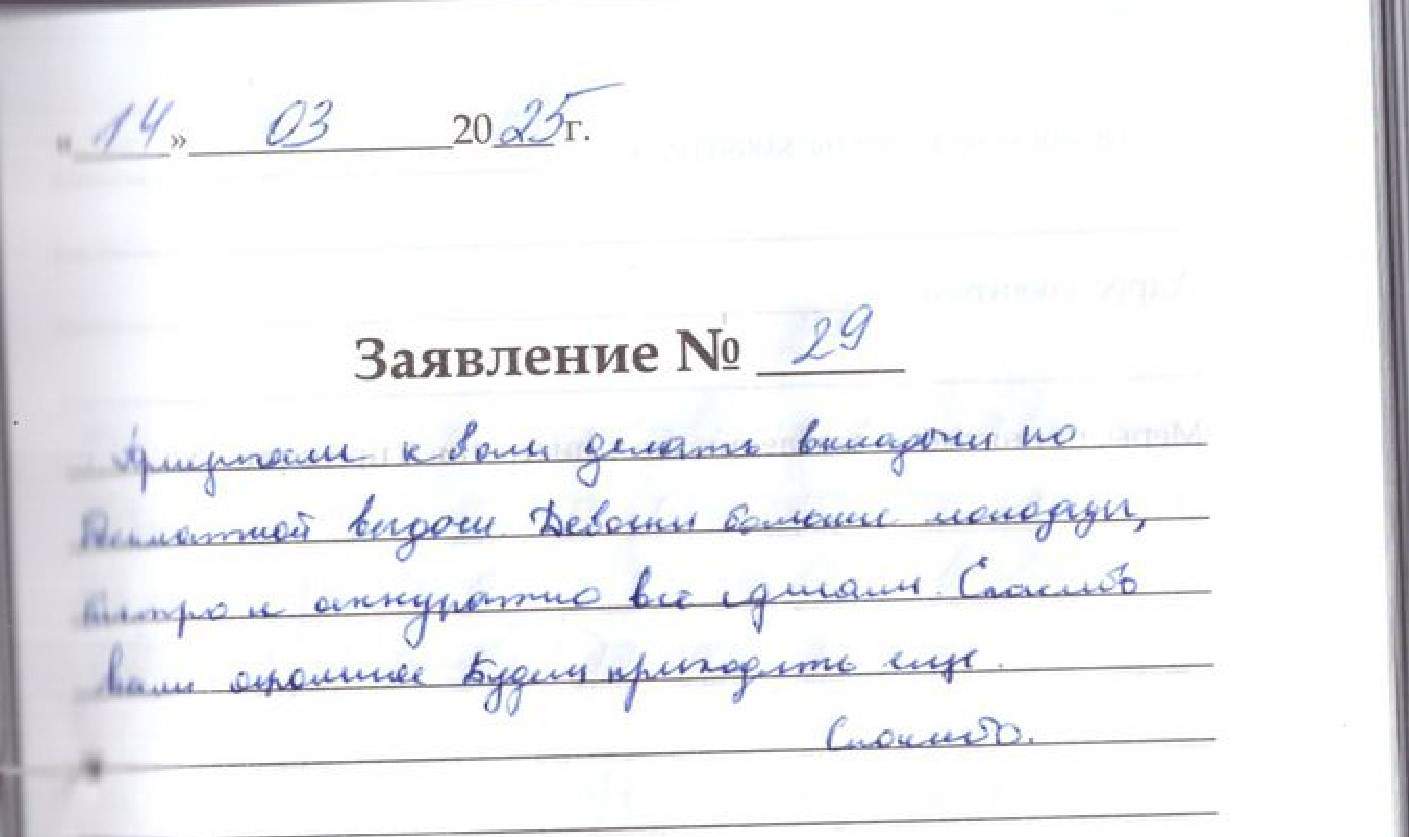 «14» 03 2025г.
Заявление № 29
Приехали к вам делать вкладочки по
бесплатной выдаче. Девочки большие молодцы,
быстро и аккуратно все сделали. Спасибо
вам огромное Будем приходить еще.
Спасибо.